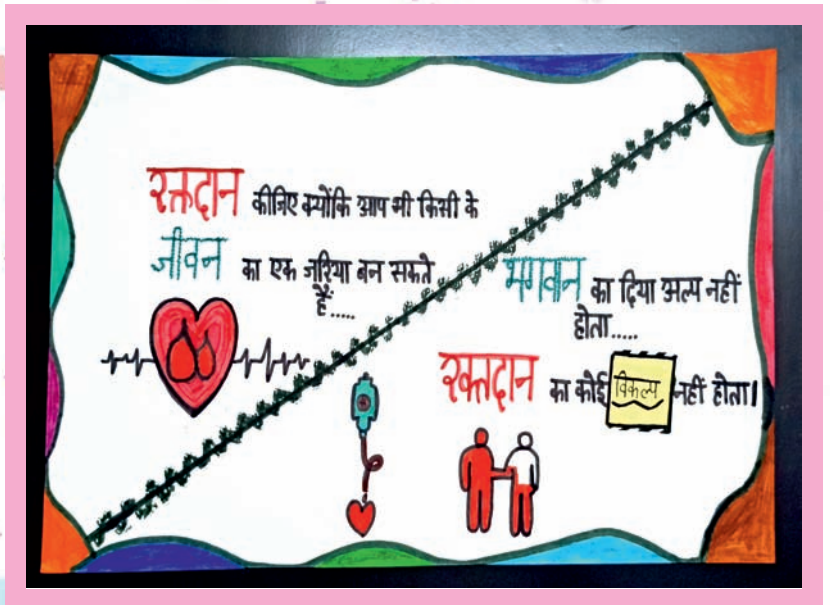 रक्तदान कीजिए क्योंकि आप भी किसी के
जीवन का एक जरिया बन सकते
हैं.....
भगवान का दिया अल्प नहीं
होता.....
रक्तदान का कोई विकल्प नहीं होता।